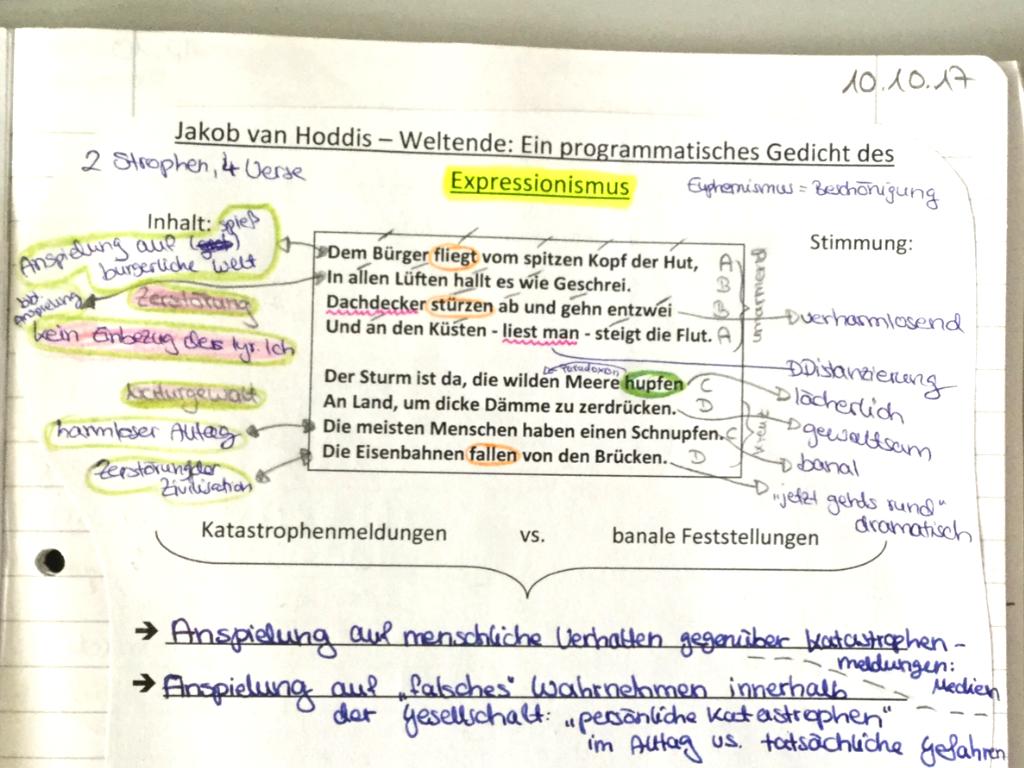 10.10.17
Jakob van Hoddis – Weltende: Ein programmatisches Gedicht des
Expressionismus
2 Strophen, 4 Verse
Euphemismus = Beschönigung
Inhalt:
Stimmung:
spieß
Anspielung auf
bürgerliche Welt
Dem Bürger fliegt vom spitzen Kopf der Hut, A
In allen Lüften hallt es wie Geschrei. B
Dachdecker stürzen ab und gehn entzwei B
Und an den Küsten - liest man - steigt die Flut. A
umarmend
Anspielung
Zerstörung
kein Einbezug des lyr. Ich
verharmlosend
Distanzierung
Paradoxon
Der Sturm ist da, die wilden Meere hupfen C
An Land, um dicke Dämme zu zerdrücken. D
Die meisten Menschen haben einen Schnupfen. C
Die Eisenbahnen fallen von den Brücken. D
Kreuz
Naturgewalt
harmloser Alltag
Zerstörung der
Zivilisation
lächerlich
gewaltsam
banal
„jetzt gehds rund"
dramatisch
Katastrophenmeldungen vs. banale Feststellungen
→ Anspielung auf menschliche Verhalten gegenüber Katastrophen-
meldungen:
Medien
→ Anspielung auf „falsches" Wahrnehmen innerhalb
der Gesellschaft: „persönliche Katastrophen"
im Alltag vs. tatsächliche Gefahren